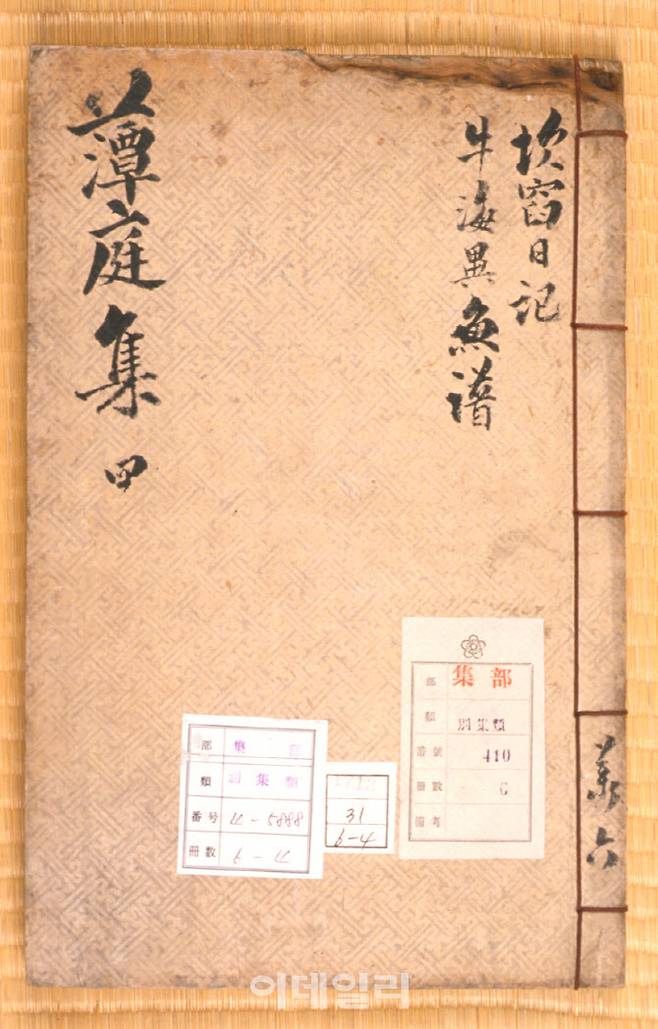 坎窞日記
牛海異魚譜
藫庭集 甲
六
部 集部
類 別集類
番號 410
冊數 6
備考
部 集部
類 別集類
番号 4-5888
冊数 6-4
31
6-4
이데일리